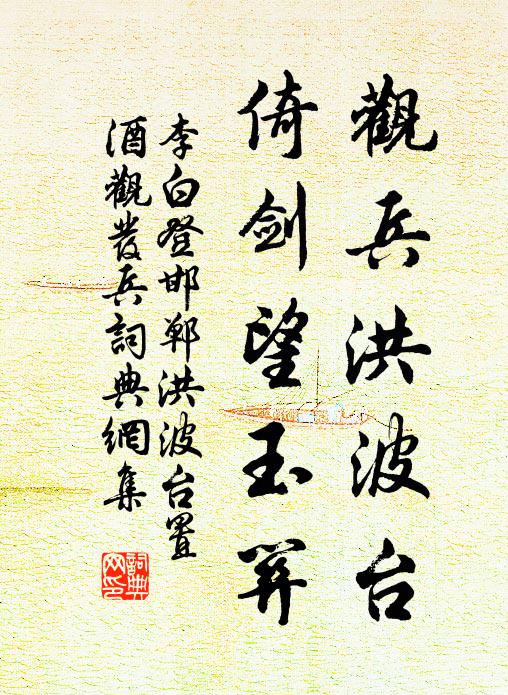 觀兵洪波台
倚劍望玉關
李白登邯鄲洪波台置
酒觀發兵詞典網集
詞典
网印